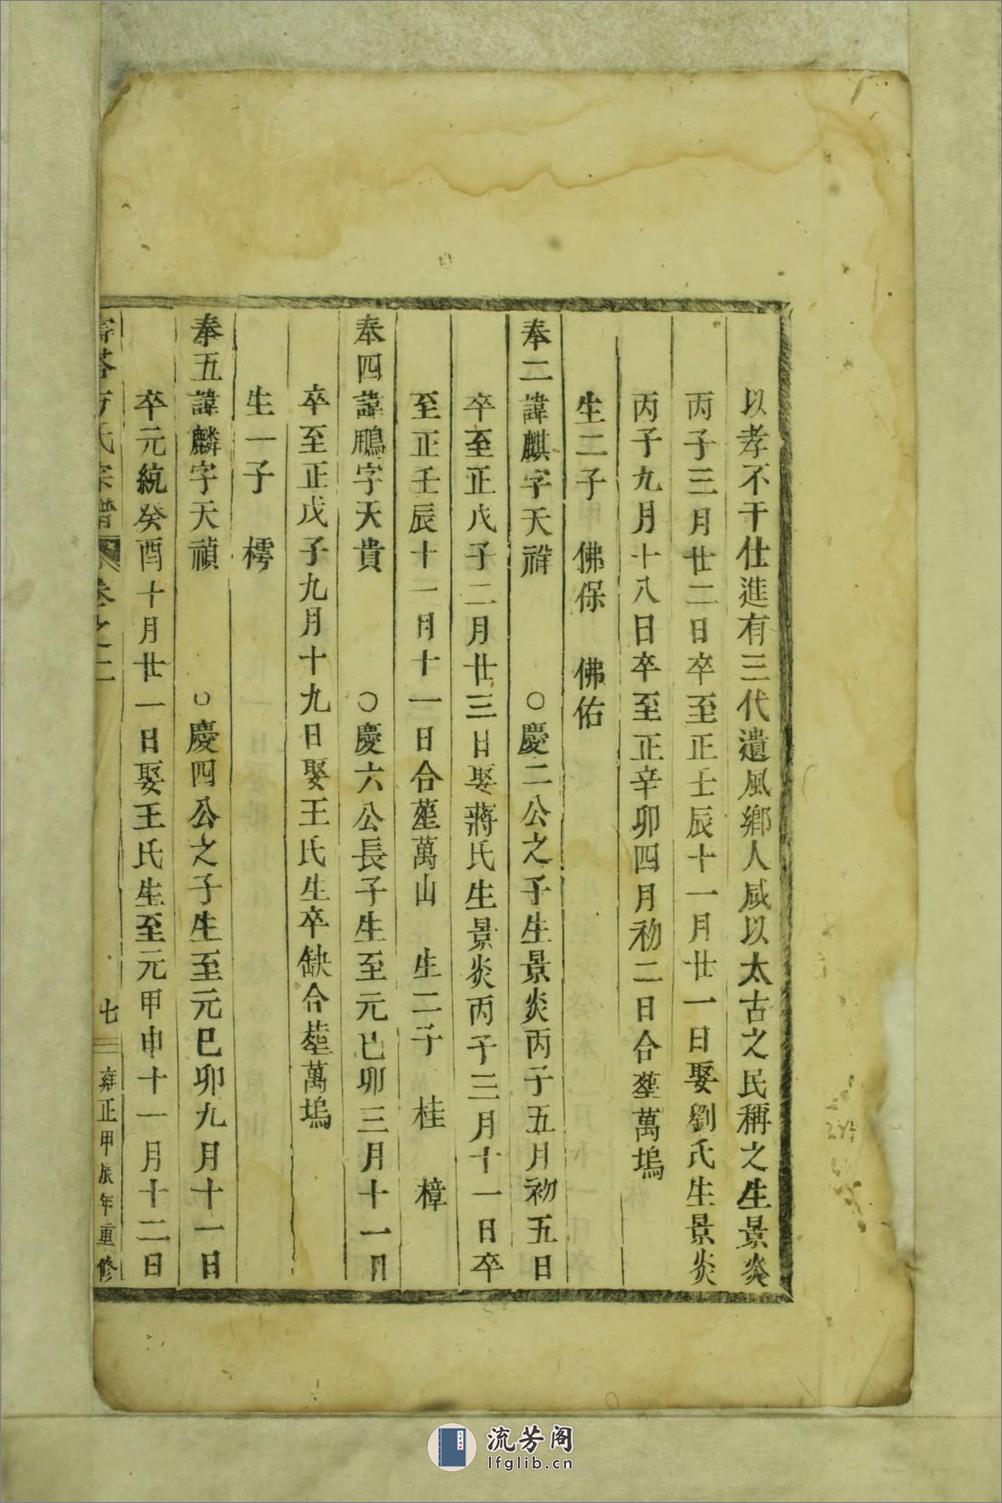 以孝不干仕進有三代遺風鄉人咸以太古之民稱之生景炎
丙子三月廿二日卒至正壬辰十一月廿一日娶劉氏生景炎
丙子九月十八日卒至正辛卯四月初二日合塟萬塢
生二子 佛保 佛佑
奉二諱麒字天祥 ○慶二公之子生景炎丙子五月初五日
卒至正戊子二月廿三日娶蔣氏生景炎丙子三月十一日卒
至正壬辰十一月十一日合塟萬山 生二子 桂 樟
奉四諱鵬字天貴 ○慶六公長子生至元已卯三月十一日
卒至正戊子九月十九日娶王氏生卒缺合塟萬塢
生一子 樗
奉五諱麟字天禎 ○慶四公之子生至元巳卯九月十一日
卒元統癸酉十月廿一日娶王氏生至元甲申十一月十二日
方氏宗譜 卷之二 七 雍正甲辰年重修
流芳阁
lfglib.cn